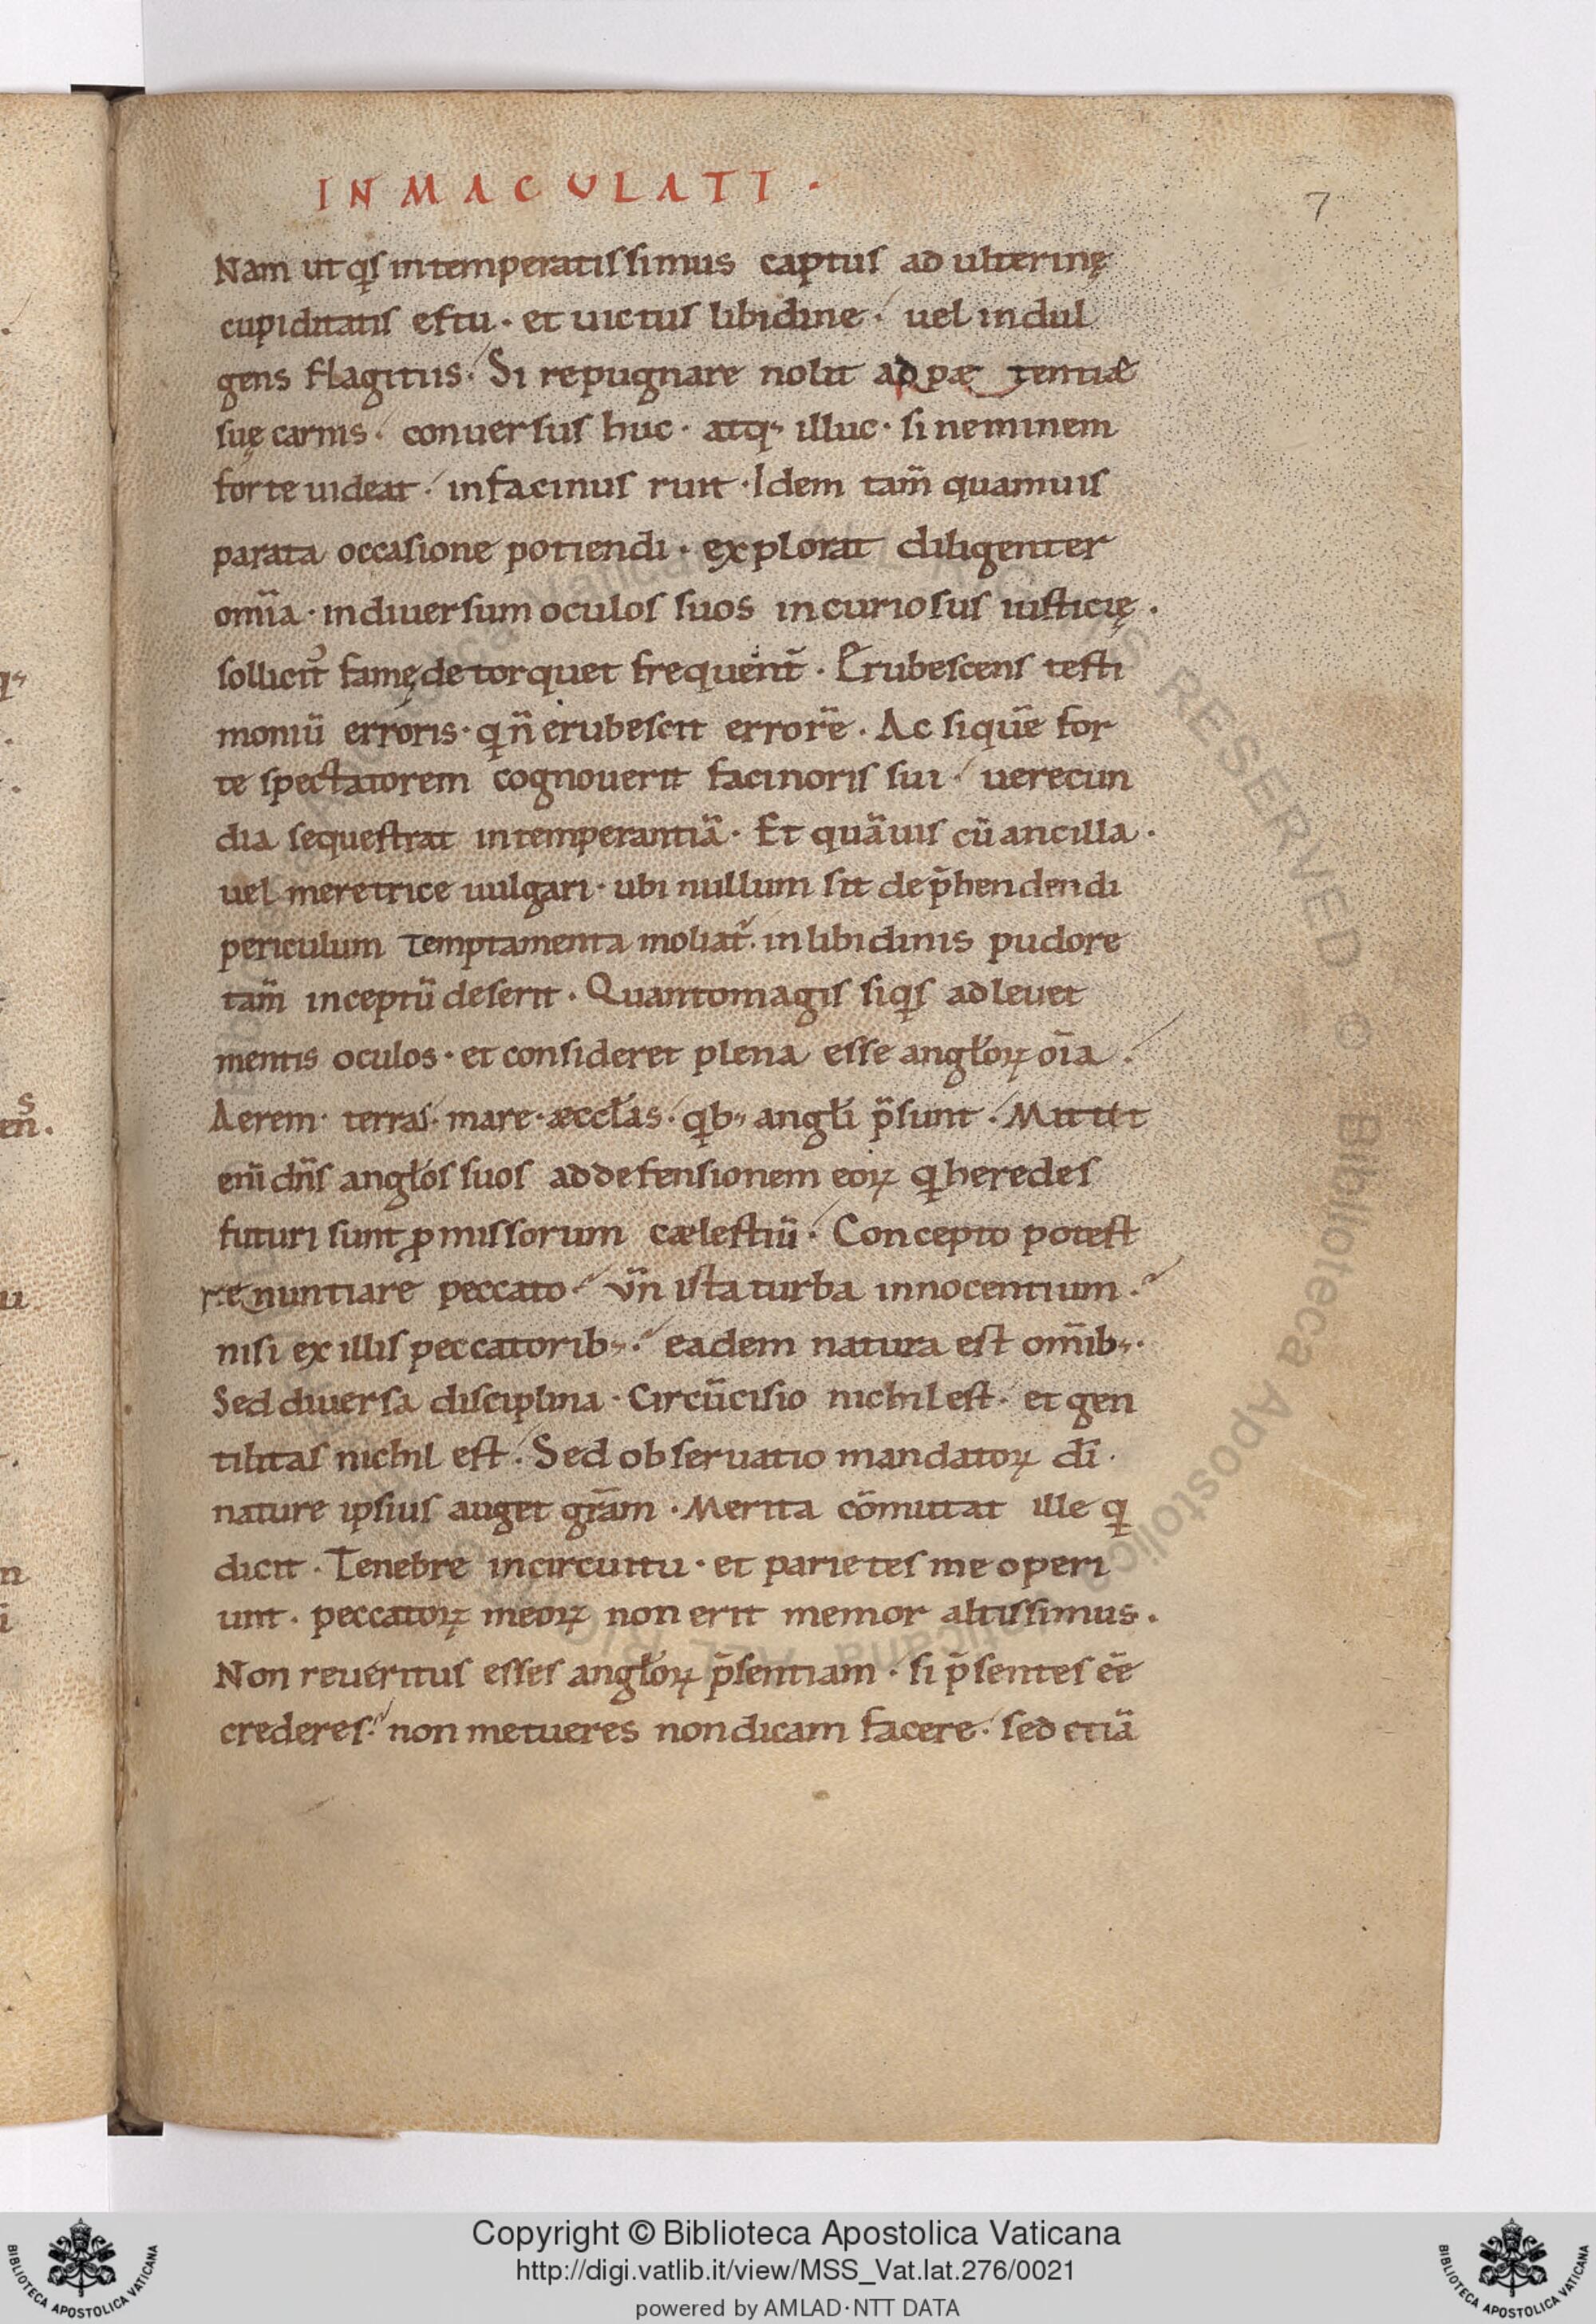 INMACULATI ·
7
Nam ut qͥs intemperatissimus captus adulterinę
cupiditatis estu · et uictus libidine · uel indul
gens flagitiis · Si repugnare nolit ad pæ tentiæ
suę carnis · conuersus huc · atq; illuc · si neminem
forte uideat · in facinus ruit · Idem tam̄ quamuis
parata occasione potiendi · explorat diligenter
om̄ia · in diuersum oculos suos incuriosus iusticię ·
sollicit᾿ famę detorquet frequent̄ · Erubescens testi
moniū erroris · q̇ n̄ erubescit errorē · Ac si quē for
te spectatorem cognouerit facinoris sui · uerecun
dia sequestrat intemperantiā · Et quāuis cū ancilla ·
uel meretrice uulgari · ubi nullum sit dep̄hendendi
periculum temptamenta moliat᷑ · in libidinis pudore
tam̄ inceptū deserit · Quantomagis siqͥs adleuet
mentis oculos · et consideret plena esse angłoꝝ oīa ·
Aerem · terras · mare · æccłas · qͥb; angłi p̄sunt · Mittit
eni᷑ dn̄s angłos suos ad defensionem eoꝝ qͥ heredes
futuri sunt ꝓmissorum cælestiū · Concepto potest
renuntiare peccato · Vn̄ ista turba innocentium ·
nisi ex illis peccatorib; · eadem natura est om̄ib; ·
Sed diuersa disciplina · Circūcisio nichil est · et gen
tilitas nichil est · Sed obseruatio mandatoꝝ dī ·
nature ipsius auget grām · Merita cōmutat ille qͥ
dicit · Tenebre in circuitu · et parietes me operi
unt · peccatoꝝ meoꝝ non erit memor altissimus ·
Non reueritus esses angłoꝝ p̄sentiam · si p̄sentes eē
crederes · non metueres non dicam facere · sed etiā
Copyright © Biblioteca Apostolica Vaticana
http://digi.vatlib.it/view/MSS_Vat.lat.276/0021
powered by AMLAD·NTT DATA
BIBLIOTECA APOSTOLICA VATICANA
BIBLIOTECA APOSTOLICA VATICANA